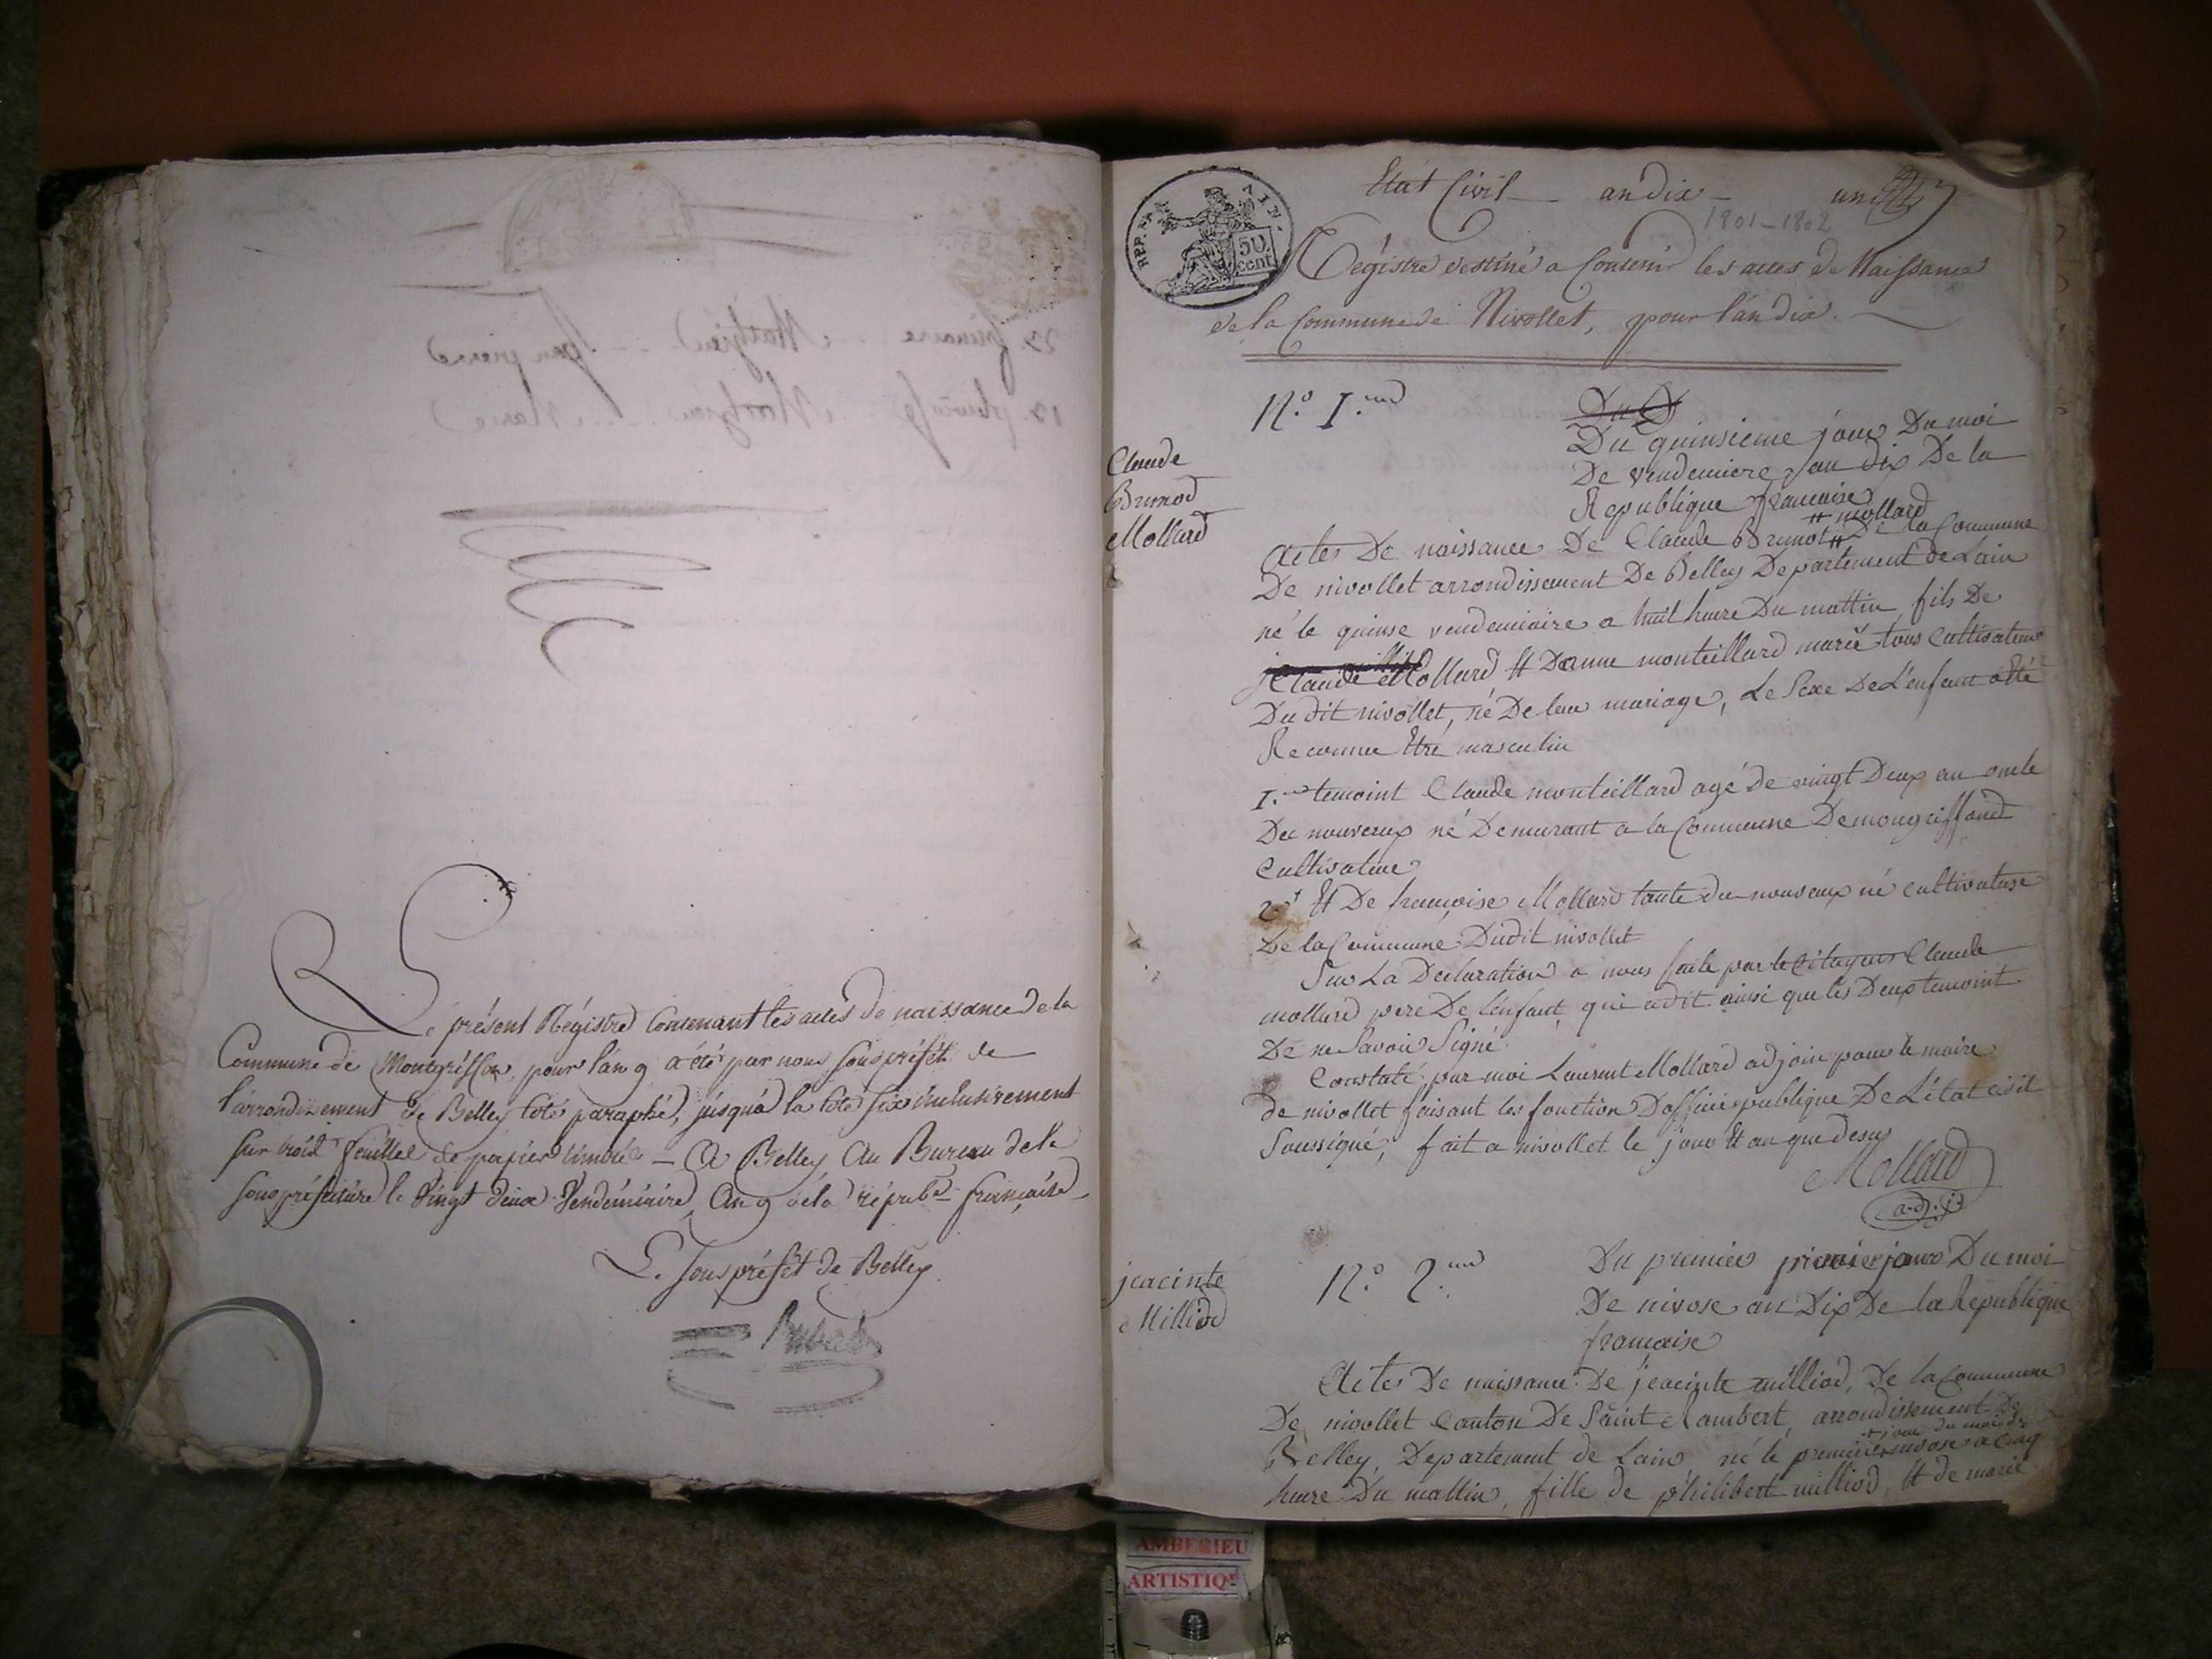 Le présent Régistre Contenant les actes de naissance de la
Commune de Montgriffon, pour l'an 9 a été par nous sous préfét de
l'arrondissement de Belley coté paraphé, jusqu'a la cote six inclusivement
sur trois feuilles de papier timbré - A Belley Au Bureau de la
sous préfecture le Vingt deux Vendémiaire, An 9 de la républ. française
Le sous préfét de Belley
REP. FRA. AIN.
50 cent
Etat Civil — an dix — un
1801-1802
Régistre destiné a Contenir les actes de Naissances
de la Commune de Nivollet, pour l'an dix.
N.º 1.
Du
Du quinsieme jour Du moi
De vendemiere an dix De la
Republique francaise
Claude
Brunod
Mollard
# mollard
Actes De naissance De Claude Brunot # De la Commune
De nivollet arrondissement De Belley Departement de Lain
né le quinse vendemiaire a huit heure Du mattin fils De
Claude Mollard Et Danne monteillard marié tous cultivateur
Du dit nivollet, né De leur mariage, Le Sexe De L'enfant a été
Reconnu Etre masculin
1. temoint Claude monteillard agé de vingt Deux an oncle
Du nouveaux né Demurant a la Commune De mongriffond
Cultivateur
2. Et De françoise Mollard tante du nouveaux né cultivateuse
De la Commune Dudit nivollet
Sur La Declaration a nous faite par le Citayens Claude
mollard pere De l'enfant, qui a dit ainsi que les Deux temoint
De ne Savoir Signé
Constaté, par moi Laurent Mollard adjoin pour le maire
de nivollet faisant les fonction D'officié publique De L'état civil
Soussigné, fait a nivollet le jour Et an que desus
Mollard
a.d.j.
jeacinte
Milliod
N.º 2.
Du premier premier jour Du moi
De nivose an Dix De la Republique
francaise
Actes De naissance De jeacinte milliod, De la Commune
De nivollet Canton De Saint Rambert, arrondissement De
+ jour du moi de
Belley, Departement de Lain né le premier + nivose a Cinq
heure Du mattin, fille de philibert milliod, Et de marie
AMBERIEU
ARTISTIQUE